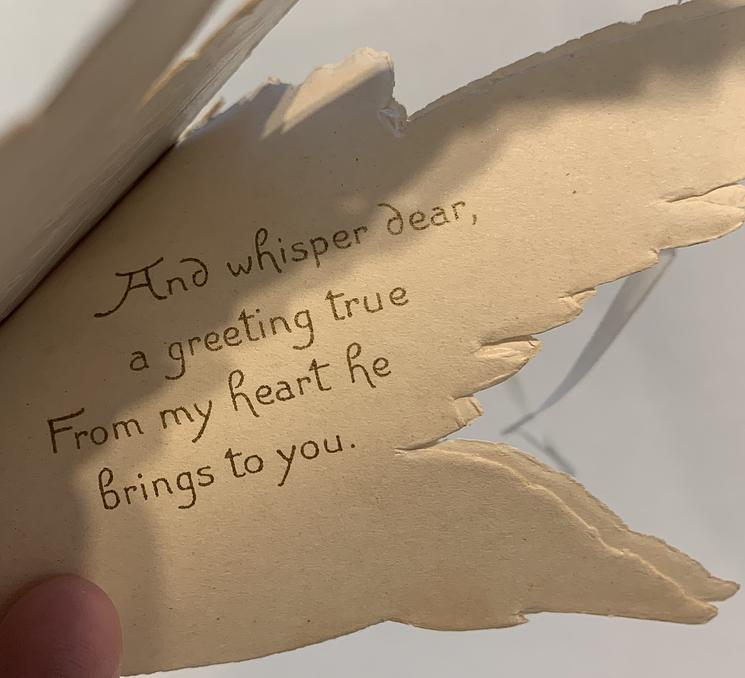 And whisper dear,
a greeting true
From my heart he
brings to you.